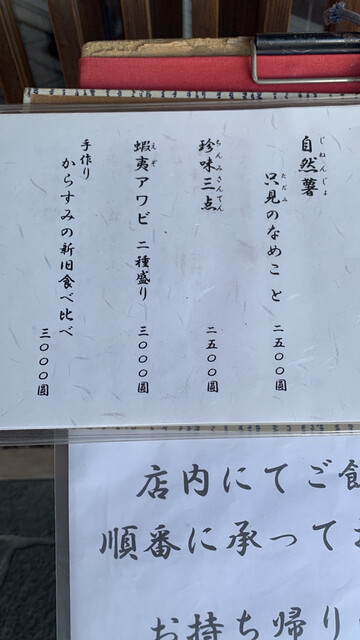 自然薯
じねんじょ
只見のなめこ と 二五〇〇圓
ただみ
珍味三点 二五〇〇圓
ちんみさんてん
蝦夷アワビ 二種盛り 三〇〇〇圓
えぞ
手作り
からすみの新旧食べ比べ
三〇〇〇圓
店内にてご飲
順番に承って
お持ち帰り